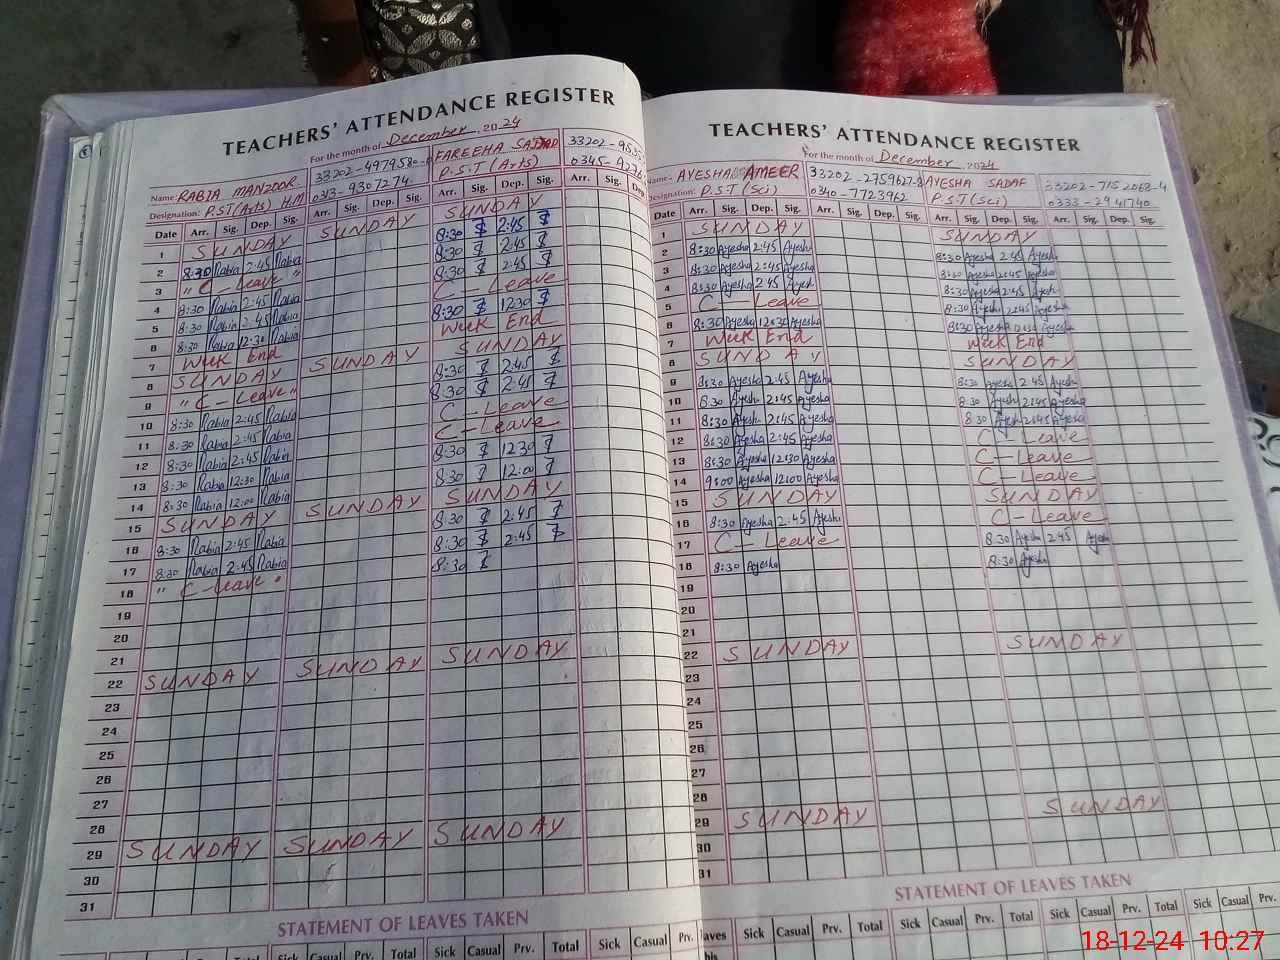 TEACHERS' ATTENDANCE REGISTER
For the month of December 2024
Name: RABIA MANZOOR 33202-4979580- FAREEHA 33202-
Designation: P.S.T(Arts) H.M 0343-9307274 P.S.T (Arts) 0345-
Date Arr. Sig. Dep. Sig. Arr. Sig. Dep. Sig. Arr. Sig. Dep. Sig. Arr. Sig.
1 SUNDAY SUNDAY SUNDAY
2 8:30 Rabia 2:45 Rabia 8:30 2:45
3 " C-Leave " 8:30 2:45
4 8:30 Rabia 2:45 Rabia 8:30 2:45
5 8:30 Rabia 2:45 Rabia C-Leave
6 8:30 Rabia 12:30 Rabia 8:30 12:30
7 Week End Week End
8 SUNDAY SUNDAY SUNDAY
9 " C-Leave " 8:30 2:45
10 8:30 Rabia 2:45 Rabia 8:30 2:45
11 8:30 Rabia 2:45 Rabia C-Leave
12 8:30 Rabia 2:45 Rabia C-Leave
13 8:30 Rabia 12:30 Rabia 8:30 12:30
14 8:30 Rabia 12:00 Rabia 8:30 12:00
15 SUNDAY SUNDAY SUNDAY
16 8:30 Rabia 2:45 Rabia 8:30 2:45
17 8:30 Rabia 2:45 Rabia 8:30 2:45
18 " C-Leave " 8:30
19
20
21
22 SUNDAY SUNDAY SUNDAY
23
24
25
26
27
28
29 SUNDAY SUNDAY SUNDAY
30
31
STATEMENT OF LEAVES TAKEN
Sick Casual Prv. Total Sick Casual Prv. Total Sick Casual Prv.
TEACHERS' ATTENDANCE REGISTER
For the month of December 2024
Name: AYESHA AMEER 33202-2759627-8 AYESHA SADAF 33202-7152068-4
Designation: P.S.T (Sci) 0340-7723962 P.S.T (Sci) 0333-2941740
Date Arr. Sig. Dep. Sig. Arr. Sig. Dep. Sig. Arr. Sig. Dep. Sig. Arr. Sig. Dep. Sig.
1 SUNDAY SUNDAY
2 8:30 Ayesha 2:45 Ayesha 8:30 Ayesha 2:45 Ayesha
3 8:30 Ayesha 2:45 Ayesha 8:30 Ayesha 2:45 Ayesha
4 8:30 Ayesha 2:45 Ayesha 8:30 Ayesha 2:45 Ayesha
5 C-Leave 8:30 Ayesha 2:45 Ayesha
6 8:30 Ayesha 12:30 Ayesha 8:30 Ayesha 12:30 Ayesha
7 Week End Week End
8 SUNDAY SUNDAY
9 8:30 Ayesha 2:45 Ayesha 8:30 Ayesha 2:45 Ayesha
10 8:30 Ayesha 2:45 Ayesha 8:30 Ayesha 2:45 Ayesha
11 8:30 Ayesha 2:45 Ayesha 8:30 Ayesha 2:45 Ayesha
12 8:30 Ayesha 2:45 Ayesha C-Leave
13 8:30 Ayesha 12:30 Ayesha C-Leave
14 9:00 Ayesha 12:00 Ayesha C-Leave
15 SUNDAY SUNDAY
16 8:30 Ayesha 2:45 Ayesha C-Leave
17 C-Leave 8:30 Ayesha 2:45 Ayesha
18 8:30 Ayesha 8:30 Ayesha
19
20
21
22 SUNDAY SUNDAY
23
24
25
26
27
28
29 SUNDAY SUNDAY
30
31
STATEMENT OF LEAVES TAKEN
Sick Casual Prv. Total Sick Casual Prv. Total Sick Casual Prv. Total Sick Casual Prv.
18-12-24 10:27